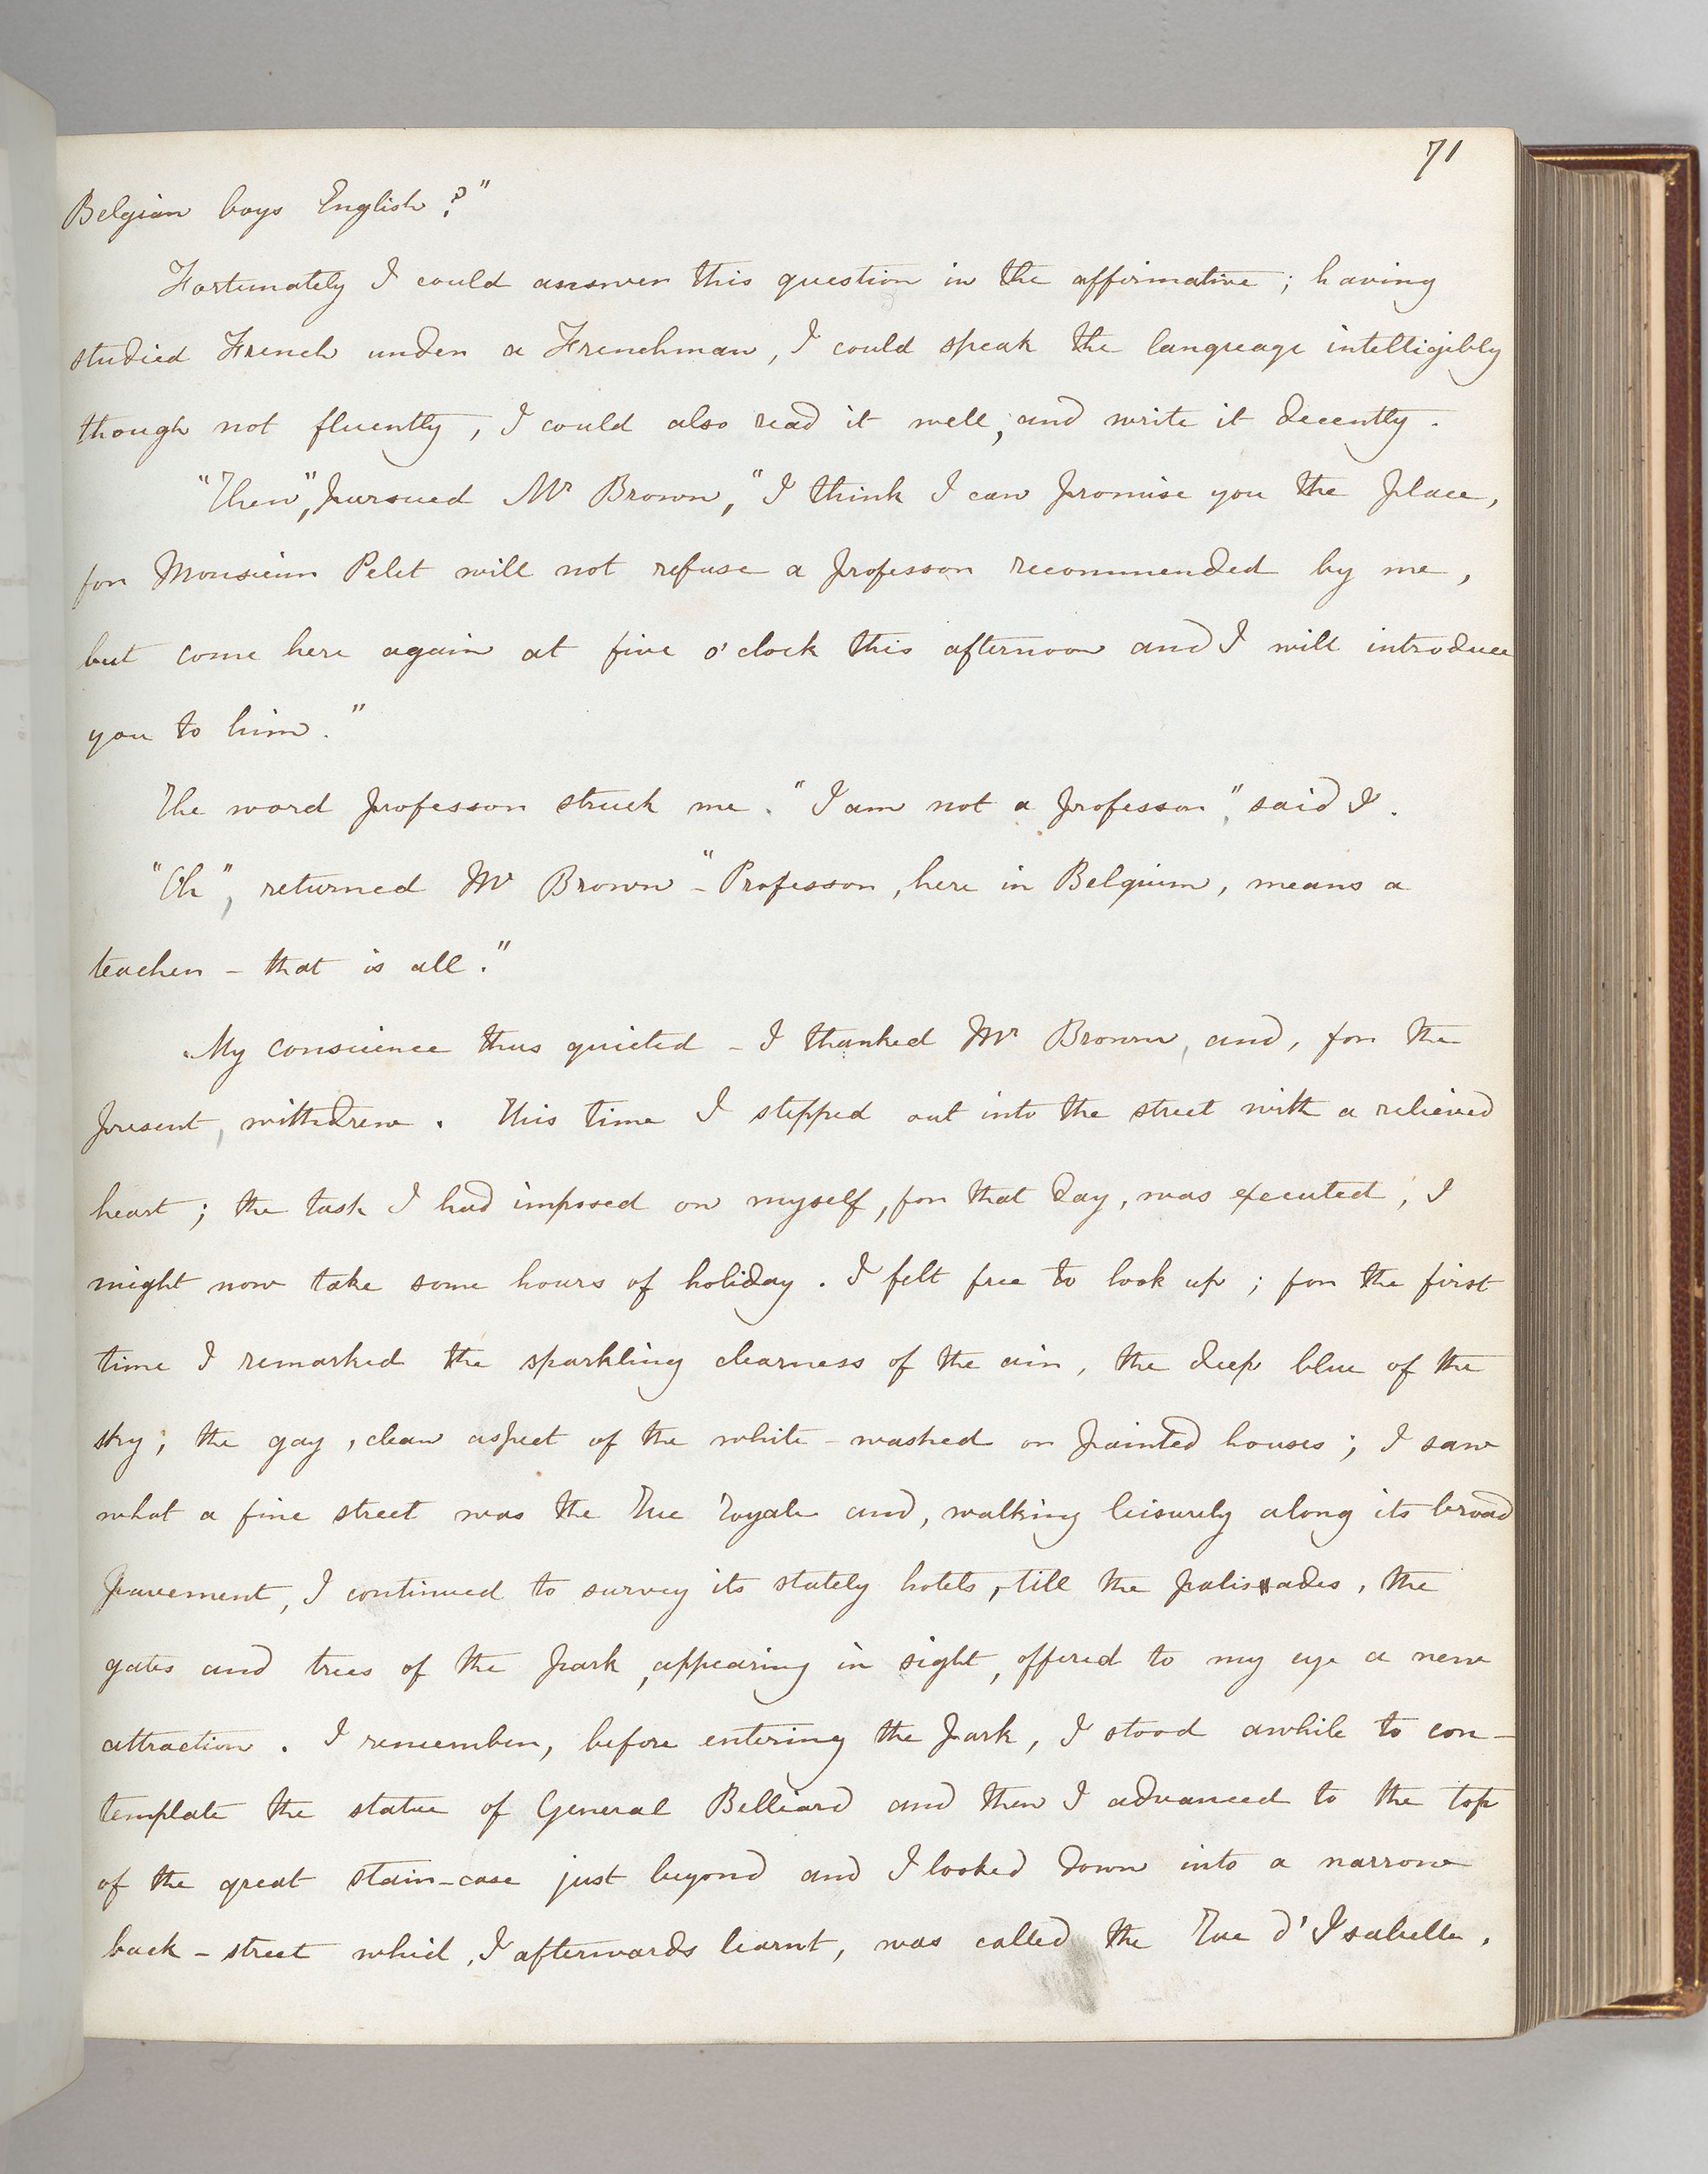 71
Belgian boys English?"
Fortunately I could answer this question in the affirmative; having
studied French under a Frenchman, I could speak the language intelligibly
though not fluently, I could also read it well, and write it decently.
"Then", pursued Mr Brown, "I think I can promise you the place,
for Monsieur Pelet will not refuse a professor recommended by me,
but come here again at five o'clock this afternoon and I will introduce
you to him."
The word professor struck me. "I am not a professor," said I.
"Oh", returned Mr Brown - "Professor, here in Belgium, means a
teacher - that is all."
My conscience thus quieted - I thanked Mr Brown, and, for the
present, withdrew. This time I stepped out into the street with a relieved
heart; the task I had imposed on myself, for that day, was executed; I
might now take some hours of holiday. I felt free to look up; for the first
time I remarked the sparkling clearness of the air, the deep blue of the
sky, the gay, clean aspect of the white-washed or painted houses; I saw
what a fine street was the Rue Royale and, walking leisurely along its broad
pavement, I continued to survey its stately hotels, till the palisades, the
gates and trees of the park, appearing in sight, offered to my eye a new
attraction. I remember, before entering the park, I stood awhile to con-
template the statue of General Belliard and then I advanced to the top
of the great stair-case just beyond and I looked down into a narrow
back-street which, I afterwards learnt, was called the Rue d'Isabelle.